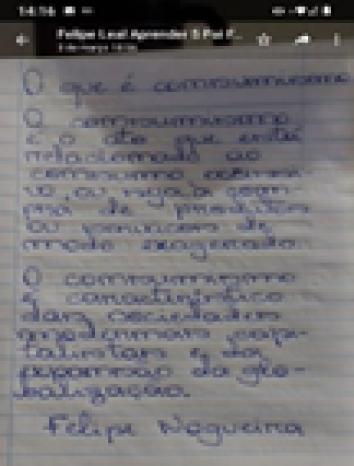 14:16
Felipe Leal Aprender 5 Pai F...
O que é consumismo
O consumismo
é o ato que está
relacionado ao
consumo excessi-
vo, ou seja, a com-
pra de produtos
ou serviços de
modo exagerado.
O consumismo
é característico
das sociedades
modernas capi-
talistas e da
expansão da glo-
balização.
Felipe Nogueira